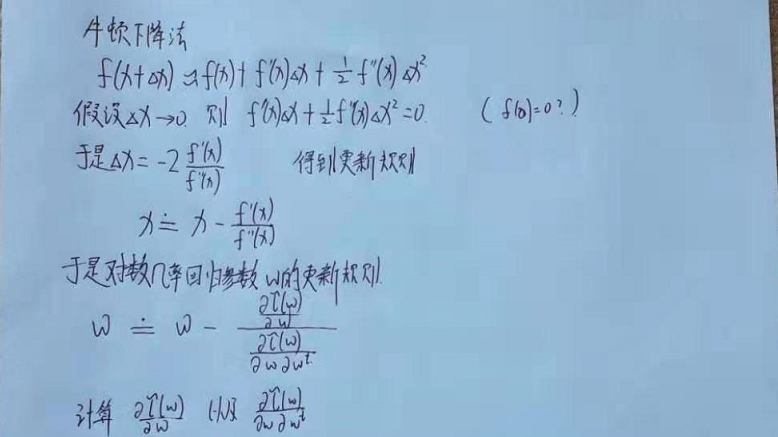 牛顿下降法
f(x+Δx) ≈ f(x) + f'(x)Δx + 1/2 f''(x) Δx²
假设Δx→0 则 f'(x)Δx + 1/2 f''(x)Δx² = 0. (f(x)=0?)
于是Δx = -2 f'(x)/f''(x) 得到更新规则
x ≐ x - f'(x)/f''(x)
于是对数几率回归参数 w的更新规则.
w ≐ w - (∂l(w)/∂w)/(∂l(w)/∂w∂wᵗ)
计算 ∂l(w)/∂w 以及 ∂l(w)/∂w∂wᵗ